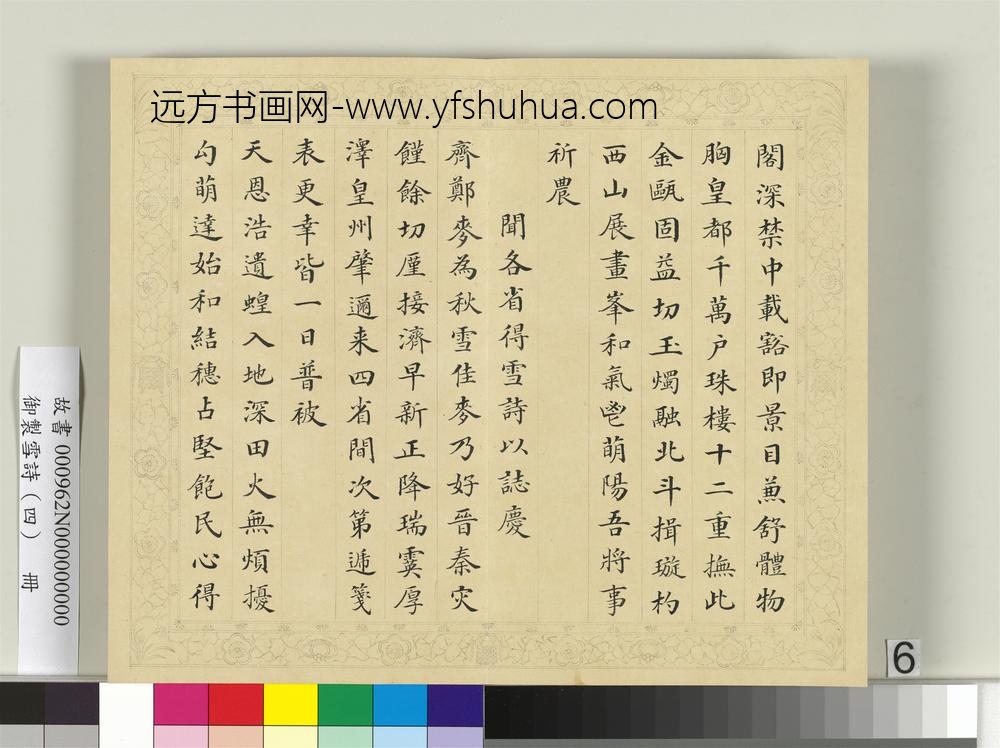 远方书画网-www.yfshuhua.com
閣深禁中載豁即景目兼舒體物
胸皇都千萬户珠樓十二重撫此
金甌固益切玉燭融北斗揖璇杓
西山展畫峯和氣鬯萌陽吾將事
祈農
聞各省得雪詩以誌慶
齊鄭麥為秋雪佳麥乃好晉秦灾
饉餘切厪接濟早新正降瑞霙厚
澤皇州肇邇来四省間次第遞箋
表更幸皆一日普被
天恩浩遺蝗入地深田火無煩擾
勾萌達始和結穗占堅飽民心得
故書 000962N000000000
御製雪詩（四） 冊
6